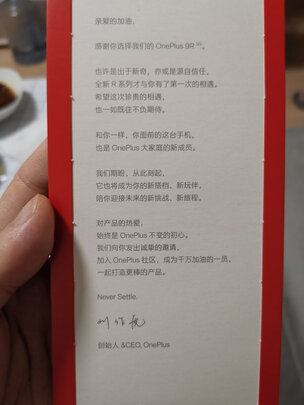 亲爱的加油，
感谢你选择我们的 OnePlus 9R 5G。
也许是出于新奇，亦或是源自信任，
全新 R 系列才与你有了第一次的相遇。
希望这次珍贵的相遇，
也一如既往不负期待。
和你一样，你面前的这台手机，
也是 OnePlus 大家庭的新成员。
我们期盼，从此刻起，
它也将成为你的新搭档、新玩伴，
陪你迎接未来的新挑战、新旅程。
对产品的热爱，
始终是 OnePlus 不变的初心。
我们向你发出诚挚的邀请，
加入 OnePlus 社区，成为千万加油的一员，
一起打造更棒的产品。
Never Settle.
刘作虎
创始人 &CEO, OnePlus